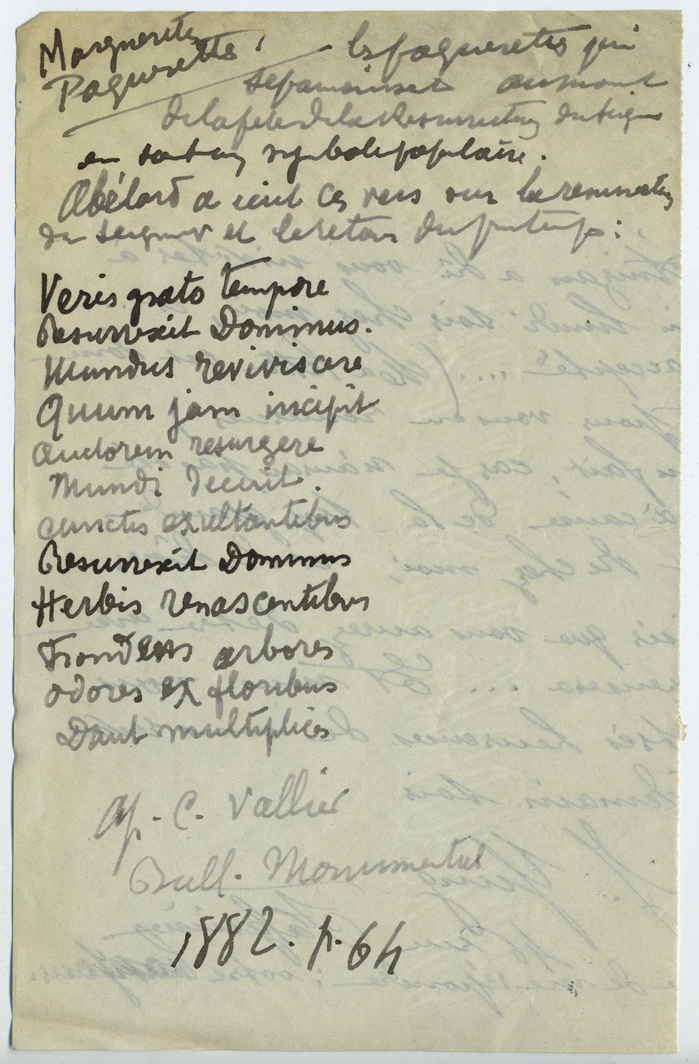 Marguerite
Paquerette. les paquerettes qui
s'epanouissent au moment
de la fete de la Resurrection du Seign
en sont un symbole populaire.
Abélard a écrit ces vers sur la resurrection
du Seigneur et le retour du printemps :
Veris grato tempore
Resurrexit Dominus.
Mundus reviviscere
Quum jam incipit
Auctorem resurgere
Mundi decuit.
cunctis exultantibus
Resurrexit Dominus
Herbis renascentibus
Frondens arbores
odores ex floribus
Dant multiplices
ap. C. Vallier
Bull. Monumental
1882. p. 64